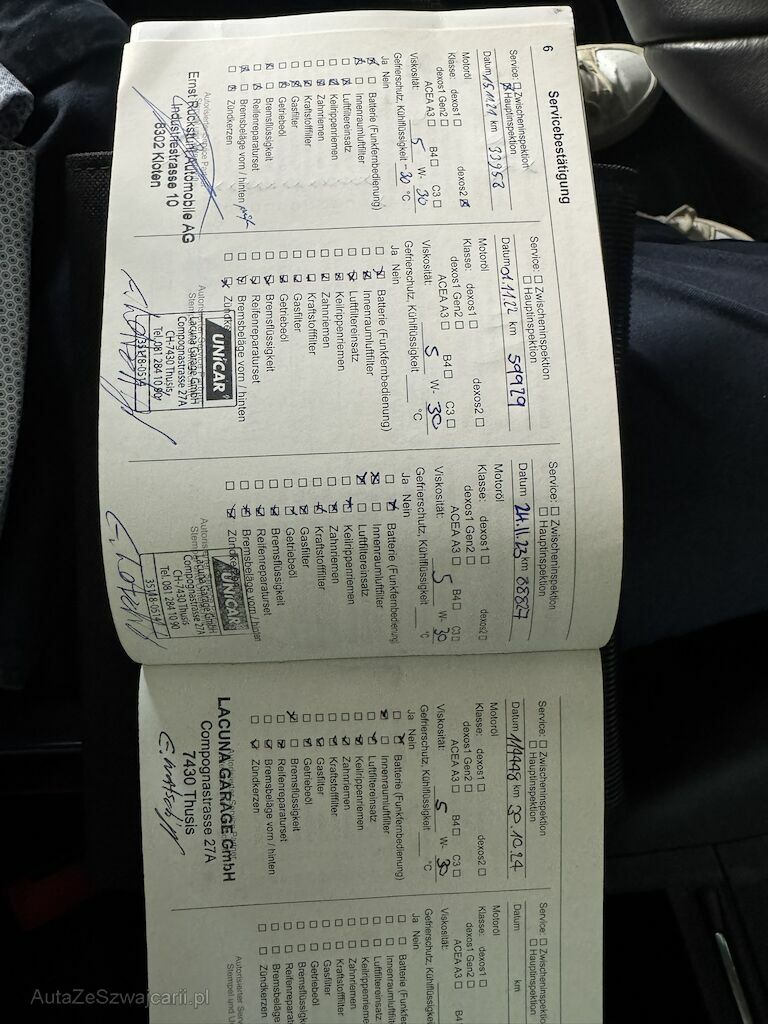 6 Servicebestätigung
Service: Zwischeninspektion
Hauptinspektion
Datum 15.11.21 km 33958
Motoröl
Klasse: dexos1 dexos2
dexos1 Gen2
ACEA A3 B4 C3
Viskosität: 5 W- 30
Gefrierschutz, Kühlflüssigkeit -30 °C
Ja Nein
Batterie (Funkfernbedienung)
Innenraumluftfilter
Luftfiltereinsatz
Keilrippenriemen
Zahnriemen
Kraftstofffilter
Gasfilter
Getriebeöl
Bremsflüssigkeit
Reifenreparaturset
Bremsbeläge vorn / hinten
Zündkerzen
Ernst Ruckstuhl Automobile AG
Industriestrasse 10
8302 Kloten
Service: Zwischeninspektion
Hauptinspektion
Datum 01.11.22 km 59929
Motoröl
Klasse: dexos1 dexos2
dexos1 Gen2
ACEA A3 B4 C3
Viskosität: 5 W- 30
Gefrierschutz, Kühlflüssigkeit °C
Ja Nein
Batterie (Funkfernbedienung)
Innenraumluftfilter
Luftfiltereinsatz
Keilrippenriemen
Zahnriemen
Kraftstofffilter
Gasfilter
Getriebeöl
Bremsflüssigkeit
Reifenreparaturset
Bremsbeläge vorn / hinten
UNiCAR
Lacuna Garage GmbH
Compognastrasse 27A
CH-7430 Thusis
Tel. 081 284 10 90
35118-0514
Service: Zwischeninspektion
Hauptinspektion
Datum 24.11.23 km 88827
Motoröl
Klasse: dexos1 dexos2
dexos1 Gen2
ACEA A3 B4 C3
Viskosität: 5 W- 30
Gefrierschutz, Kühlflüssigkeit °C
Ja Nein
Batterie (Funkfernbedienung)
Innenraumluftfilter
Luftfiltereinsatz
Keilrippenriemen
Zahnriemen
Kraftstofffilter
Gasfilter
Getriebeöl
Bremsflüssigkeit
Reifenreparaturset
Bremsbeläge vorn / hinten
Zündkerzen
UNiCAR
Lacuna Garage GmbH
Compognastrasse 27A
CH-7430 Thusis
Tel. 081 284 10 90
35118-0514
Service: Zwischeninspektion
Hauptinspektion
Datum 114448 km 30.10.24
Motoröl
Klasse: dexos1 dexos2
dexos1 Gen2
ACEA A3 B4 C3
Viskosität: 5 W- 30
Gefrierschutz, Kühlflüssigkeit °C
Ja Nein
Batterie (Funkfernbedienung)
Innenraumluftfilter
Luftfiltereinsatz
Keilrippenriemen
Zahnriemen
Kraftstofffilter
Gasfilter
Getriebeöl
Bremsflüssigkeit
Reifenreparaturset
Bremsbeläge vorn / hinten
Zündkerzen
LACUNA GARAGE GmbH
Compognastrasse 27A
7430 Thusis
Service: Zwischeninspektion
Hauptinspektion
Datum km
Motoröl
Klasse: dexos1
dexos1 Gen2
ACEA A3 B4
Viskosität:
Gefrierschutz, Kühlflüssigkeit
Ja Nein
Batterie (Funkfernbed
Innenraumluftfilter
Luftfiltereinsatz
Keilrippenriemen
Zahnriemen
Kraftstofffilter
Gasfilter
Getriebeöl
Bremsflüssigkeit
Reifenreparaturset
Bremsbeläge vorn
Zündkerzen
Autorisierter Serv
Stempel und U
AutaZeSzwajcarii.pl